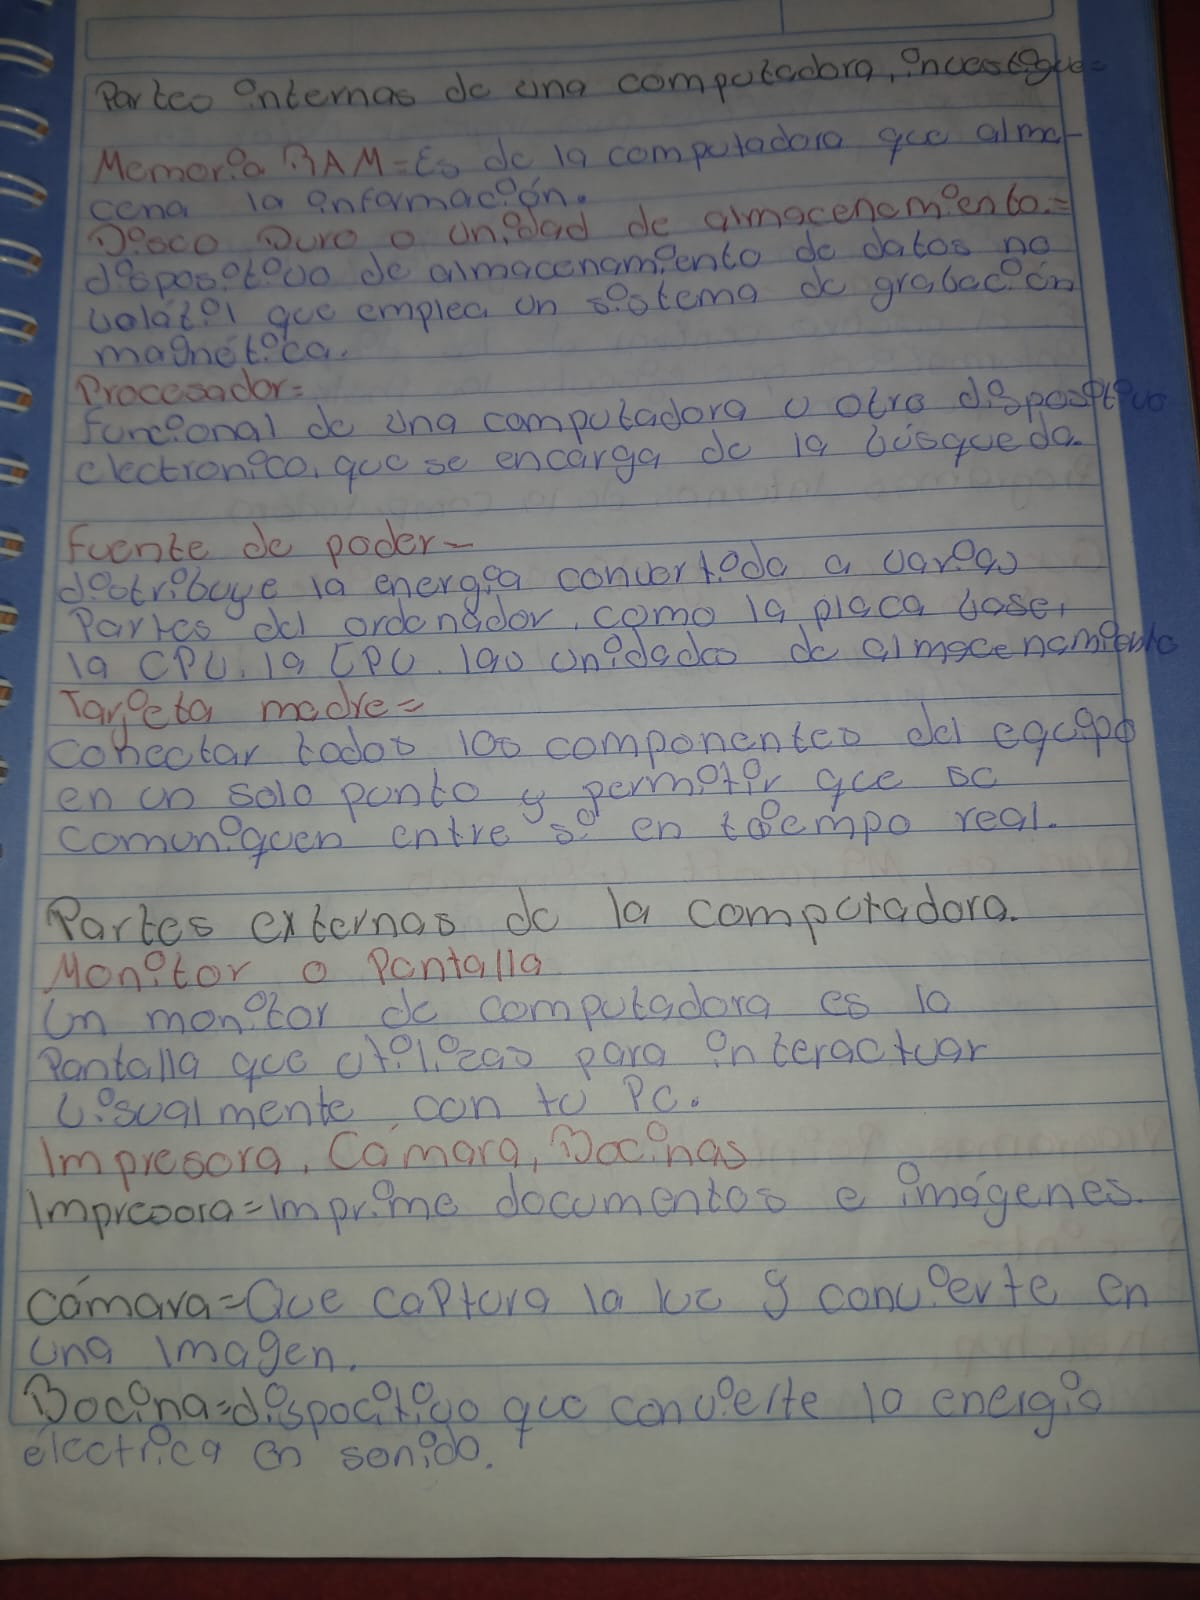 Partes internas de una computadora, investigue=
Memoria RAM=Es de la computadora que alma-
cena la información.
Disco Duro o unidad de almacenamiento.=
dispositivo de almacenamiento de datos no
volátil que emplea un sistema de grabación
magnética.
Procesador=
funcional de una computadora u otro dispositivo
electronico, que se encarga de la búsqueda.
Fuente de poder-
distribuye la energía convertida a varias
Partes del ordenador, como la placa base,
la CPU, la CPU, las unidades de almacenamiento
Tarjeta madre=
conectar todos los componentes del equipo
en un solo punto y permitir que se
comuniquen entre sí en tiempo real.
Partes externas de la computadora.
Monitor o Pantalla
Un monitor de computadora es la
Pantalla que utilizas para interactuar
visualmente con tu PC.
Impresora, Cámara, Bocinas
Impresora=Imprime documentos e imágenes.
Cámara=Que captura la luz y convierte en
una imagen.
Bocina=dispocitivo que convierte la energia
électrica en sonido.